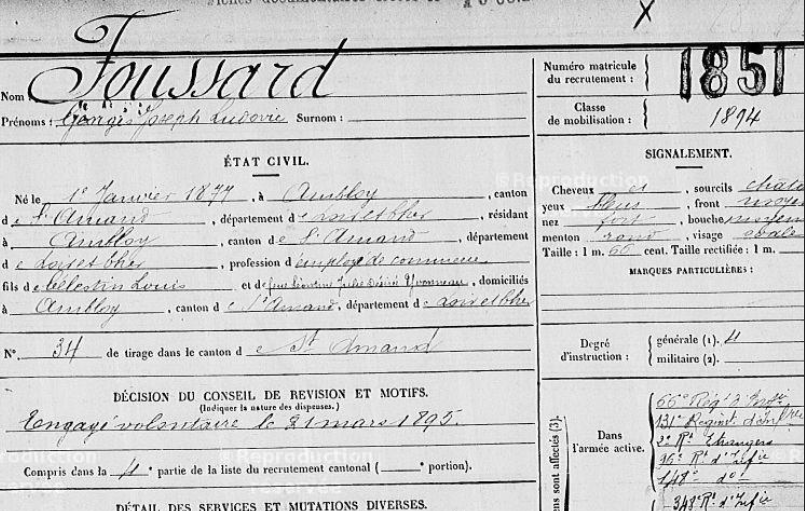 Foussard
Nom
Prénoms : Georges Joseph Ludovic Surnom :
Numéro matricule du recrutement : 1851
Classe de mobilisation : 1894
ÉTAT CIVIL.
Né le 1er Janvier 1877, à Ambloy, canton
de St Amand, département de Loir et Cher, résidant
à Ambloy, canton de St Amand, département
de Loir et Cher, profession d'employé de commerce
fils de Célestin Louis et de feue Désiré Yvonneau, domiciliés
à Ambloy, canton de St Amand, département de Loir et Cher
N° 34 de tirage dans le canton de St Amand
DÉCISION DU CONSEIL DE REVISION ET MOTIFS.
(Indiquer la nature des dispenses.)
Engagé volontaire le 21 mars 1895.
Compris dans la 4e partie de la liste du recrutement cantonal ( e portion).
DÉTAIL DES SERVICES ET MUTATIONS DIVERSES.
SIGNALEMENT.
Cheveux et, sourcils châta
yeux bleus, front moye
nez fort, bouche moyen
menton rond, visage ovale
Taille : 1 m. 66 cent. Taille rectifiée : 1 m.
MARQUES PARTICULIÈRES :
Degré d'instruction : générale (1). 4
militaire (2).
ns sont affectés (3).
Dans l'armée active.
66e Régt d'Infie
131e Régimt d'Infre
2e Rt Etrangers
95e Rt d'Infie
148e do
348e Rt d'Infie
© Reproduction